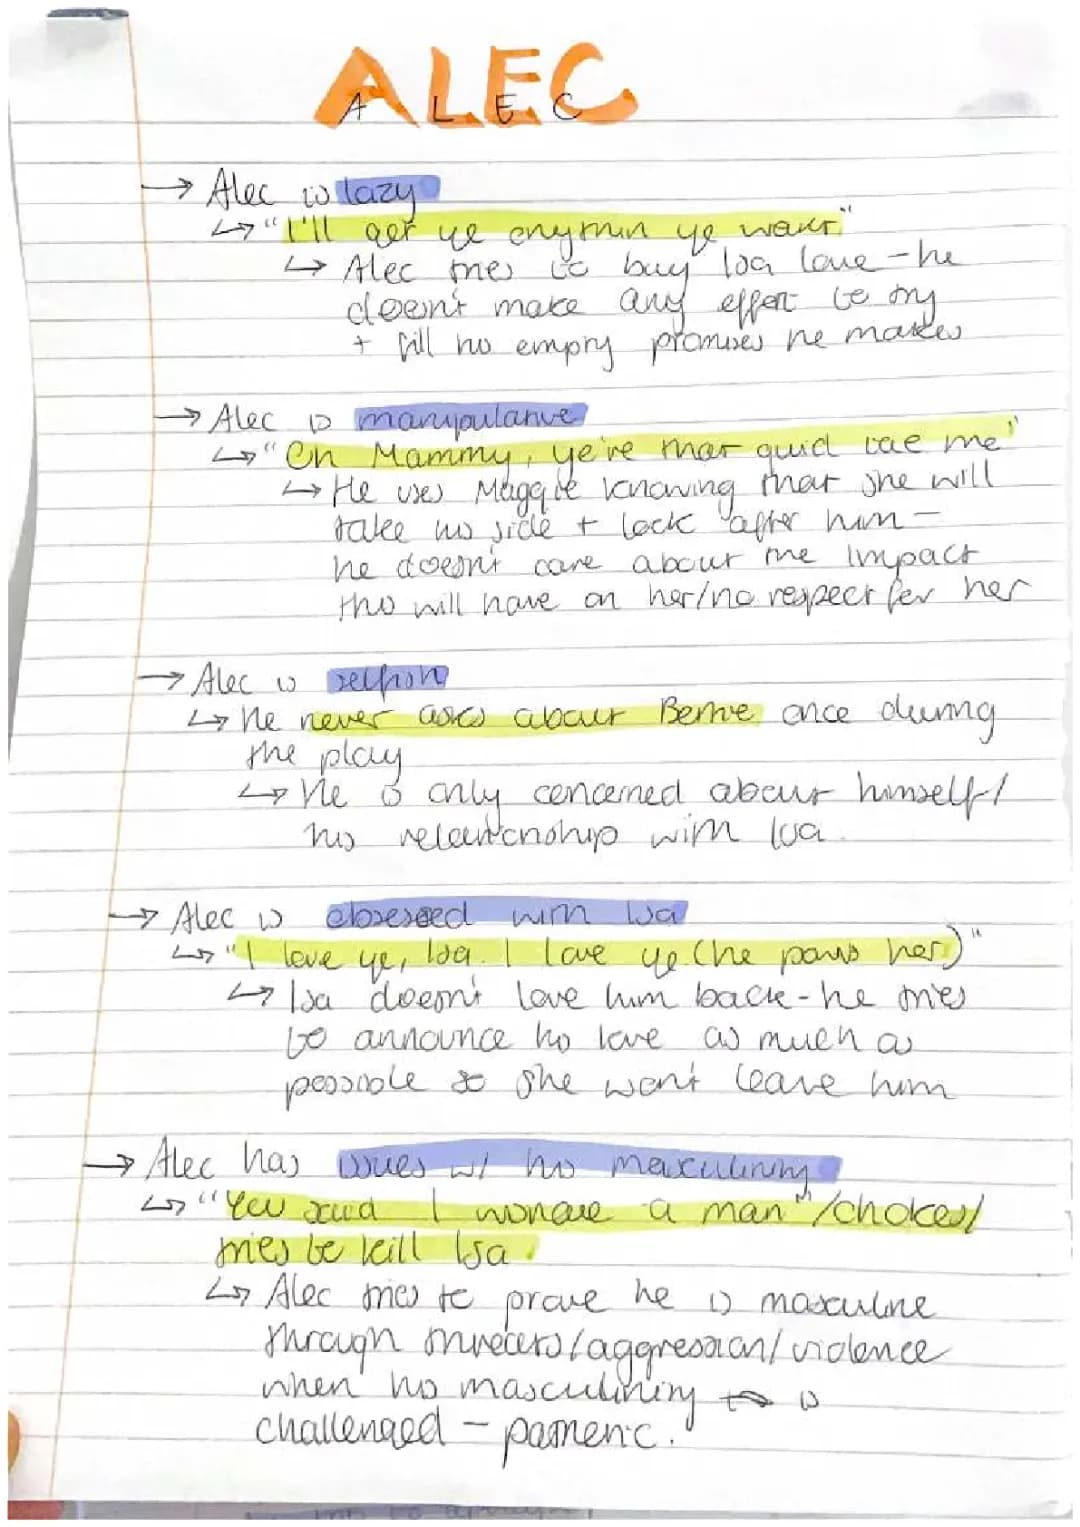 ALEC
A L E C
→ Alec is lazy
↳ "I'll get ye anythin ye want."
↳ Alec tries to buy Isa love - he
doesn't make any effort to try
+ fill his empty promises he makes
→ Alec is manipulative
↳ "Oh Mammy, ye're that guid tae me"
↳ He uses Maggie knowing that she will
take his side + look after him -
he doesn't care about the impact
this will have on her/no respect for her
→ Alec is selfish
↳ he never asks about Bertie once during
the play
↳ He is only concerned about himself/
his relationship with Isa.
→ Alec is obsessed with Isa
↳ "I love ye, Isa. I love ye (he paws her)"
↳ Isa doesn't love him back - he tries
to announce his love as much as
possible so she won't leave him
→ Alec has issues w/ his masculinity
↳ "You said I wisnae a man"/chokes/
tries to kill Isa.
↳ Alec tries to prove he is masculine
through threats/aggression/violence
when his masculinity is
challenged - pathetic.